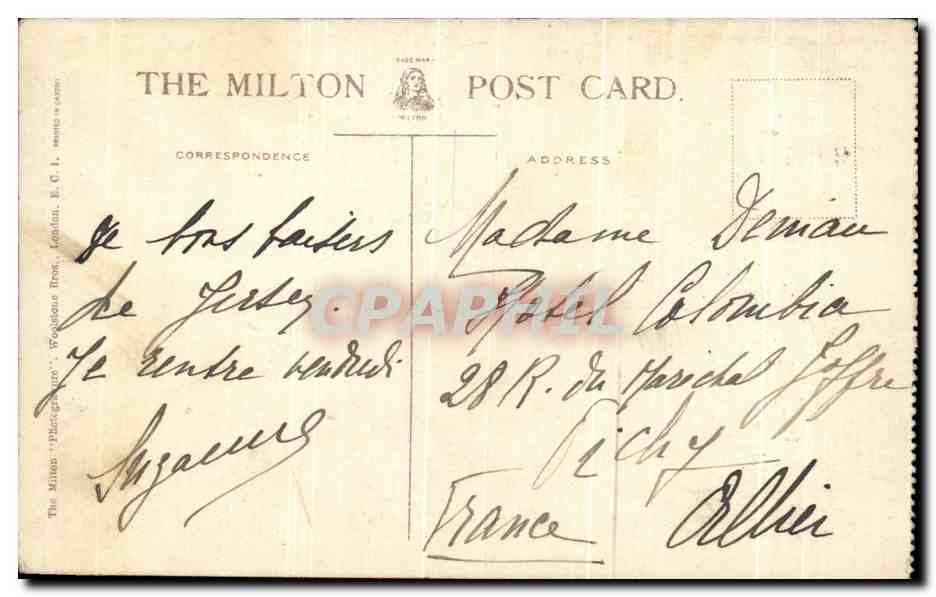 TRADE MARK
THE MILTON POST CARD.
MILTON
CORRESPONDENCE
ADDRESS
bons baisers
de Jersey.
Je rentre vendredi
Suzanne
Madame Demau
Hotel Colombia
28 R. du Marechal Joffre
Vichy
Allier
France
The Milton "Photogravure" Woolstone Bros., London, E.C.1. PRINTED IN
CPAPHIL